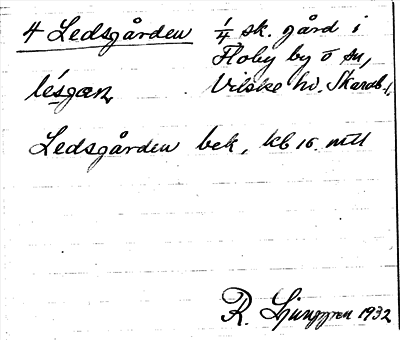 4 Ledsgården 1/4 sk. gård i
Floby by o sn,
lésgan, Vilske hd. Skarab. l.
Ledsgården bek, kb 10. mtl
R. Ljunggren 1932